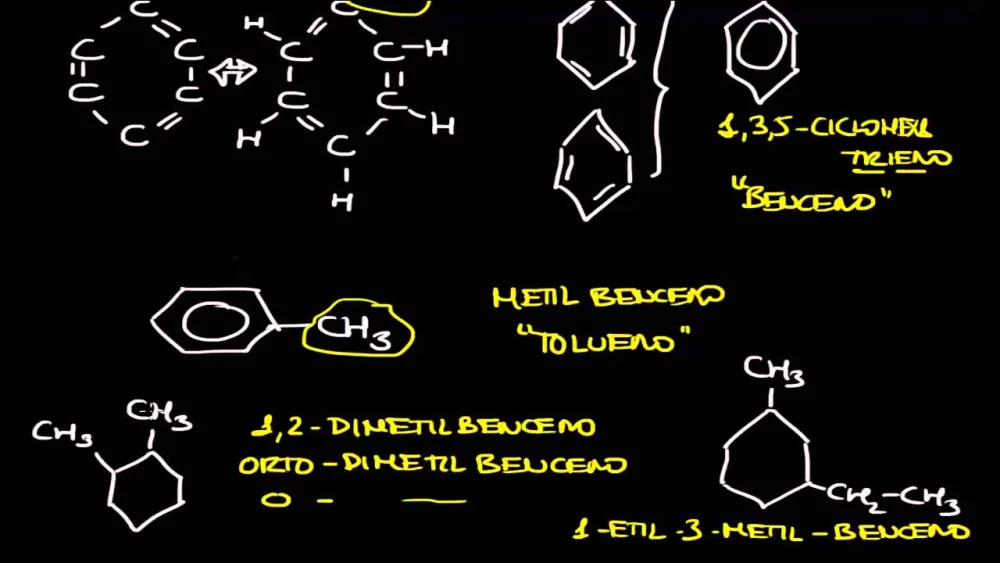 C
C C
C C
C
C
H C C H
C C
H H
C
H
1,3,5-CICLOHEX
TRIENO
"BENCENO"
CH3
METIL BENCENO
"TOLUENO"
CH3
CH3
1,2-DIMETILBENCENO
ORTO-DIMETIL BENCENO
O -
CH3
CH2-CH3
1-ETIL-3-METIL-BENCENO